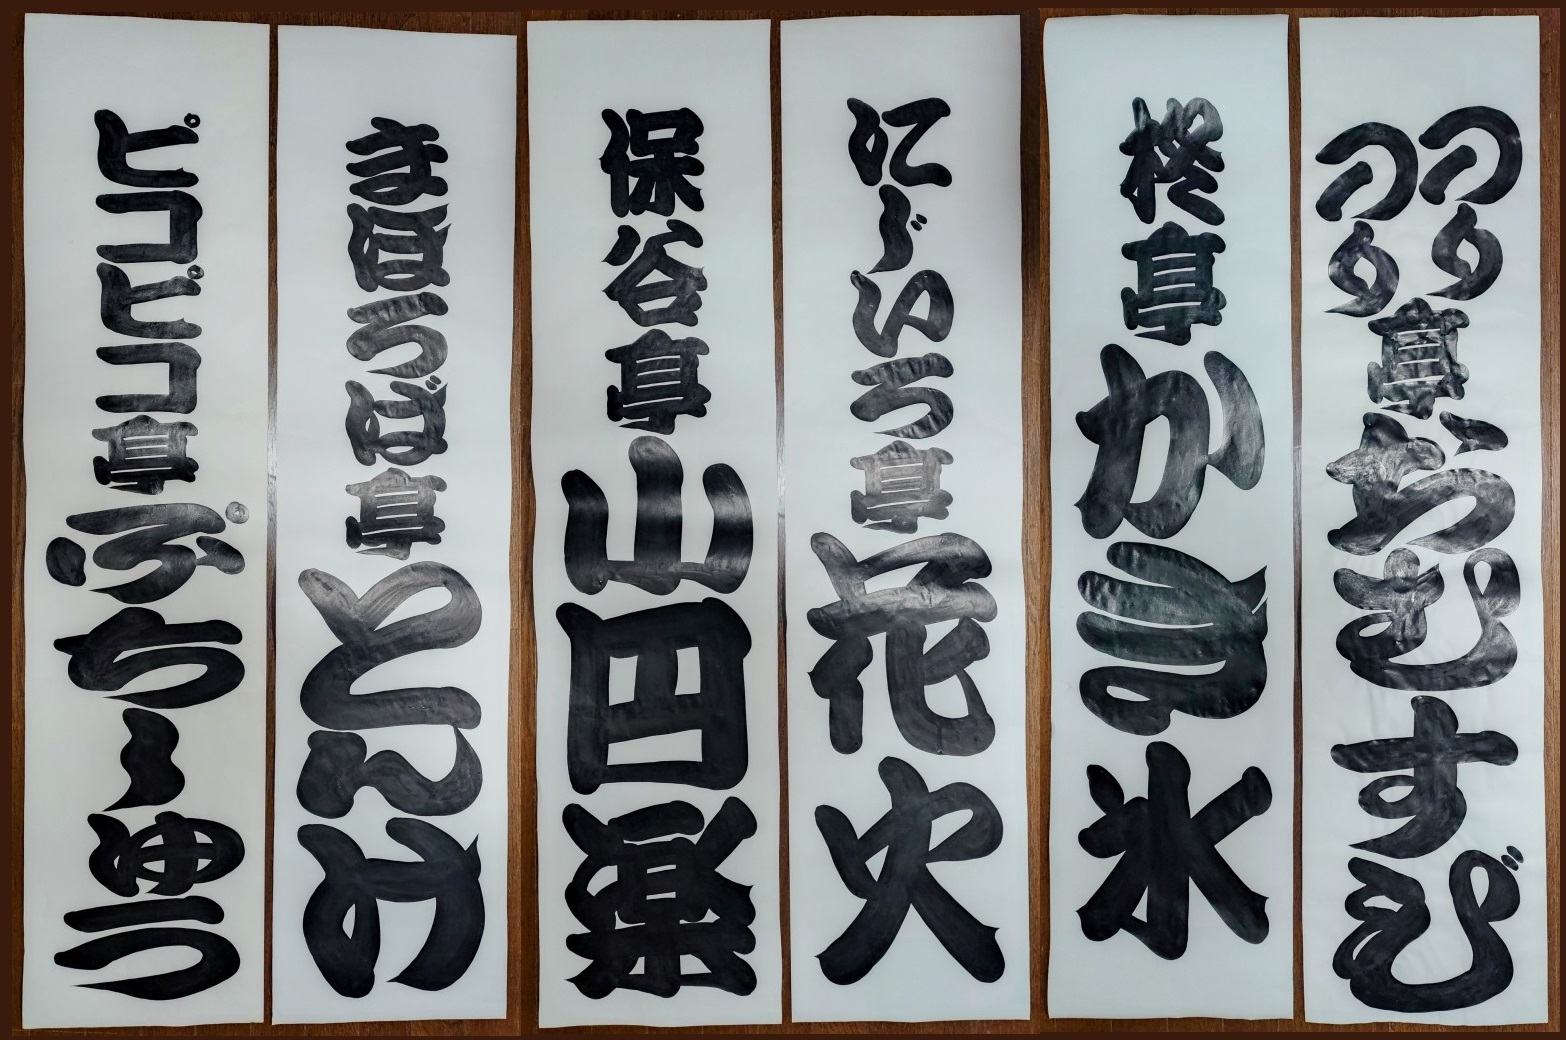 つるつる亭おむすび
柊亭かき氷
にじいろ亭花火
保谷亭山四楽
まほろば亭とんみ
ピコピコ亭ぷち〜ゆう